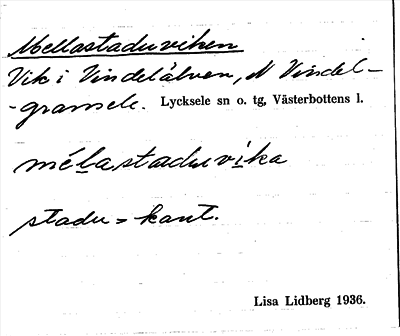 Mellastaduviken
Vik i Vindelälven, N Vindel-
-gransele. Lycksele sn o. tg, Västerbottens l.
mélastaduvika
stadu = kant.
Lisa Lidberg 1936.